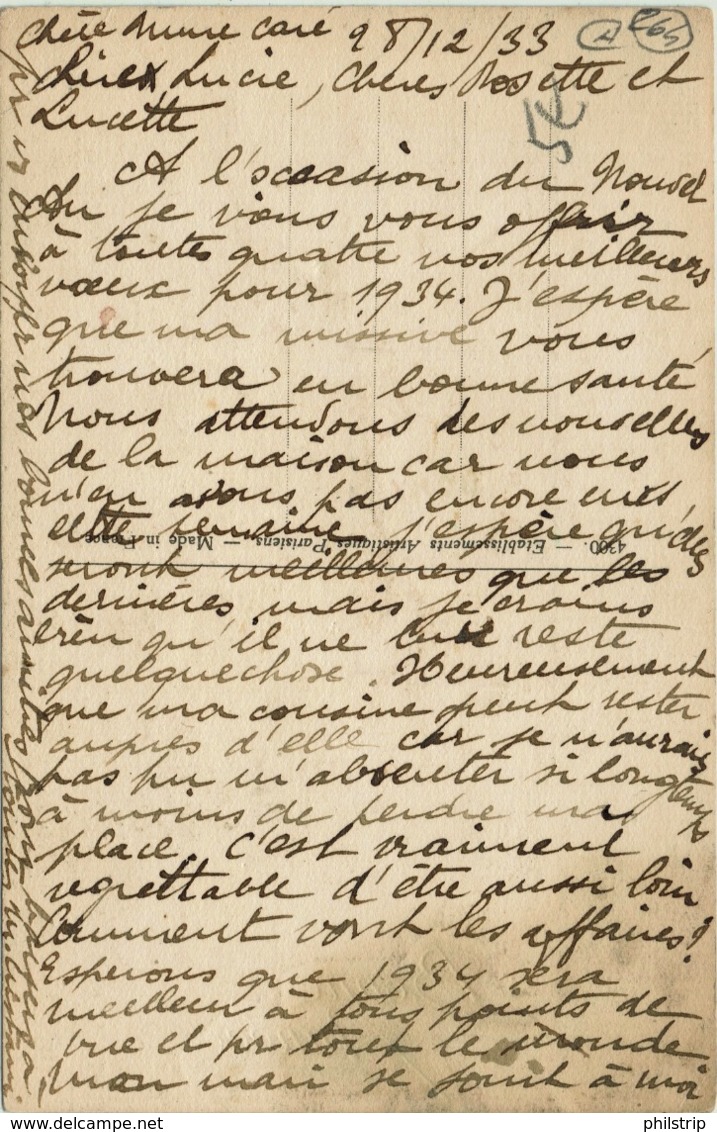 Chère Mme Caré 28/12/33
Chère Lucie, Chères Rosette et
Lucette
A l'occasion du Nouvel
An je viens vous offrir
à toutes quatre nos meilleurs
vœux pour 1934. J'espère
que ma missive vous
trouvera en bonne santé
Nous attendons des nouvelles
de la maison car nous
n'en avons pas encore eues
cette semaine j'espère qu'elles
seront meilleures que les
dernières, mais je crains
bien qu'il ne lui reste
quelquechose. Heureusement
que ma cousine peut rester
auprès d'elle car je n'aurais
pas pu m'absenter si longtemps
à moins de perdre ma
place, c'est vraiment
regrettable d'être aussi loin
Comment vont les affaires?
Esperons que 1934 sera
meilleur à tous points de
vue et pr tout le monde
Mon mari se joint à moi
pr vs envoyer nos bonnes amitiés
4300. — Etablissements Artistiques Parisiens — Made in France
philstrip